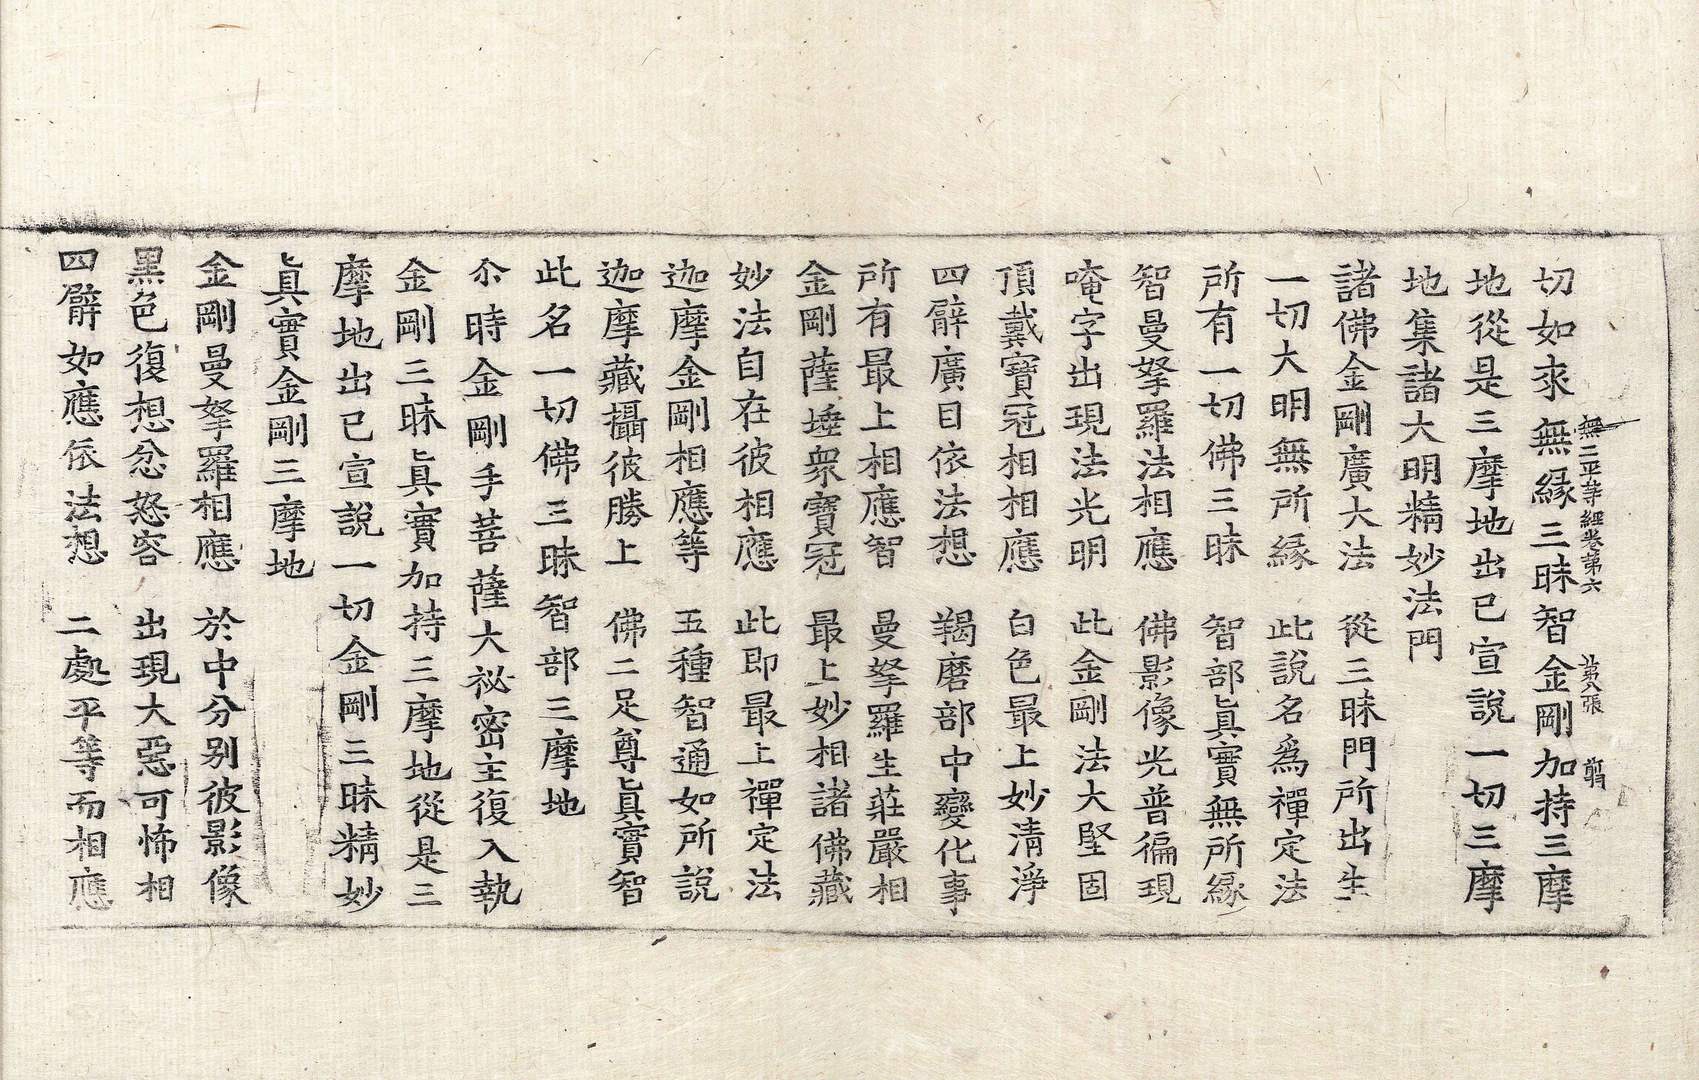 無二平等經卷第六 第八張
切如來無緣三昧智金剛加持三摩
地從是三摩地出已宣說一切三摩
地集諸大明精妙法門
諸佛金剛廣大法 從三昧門所出生
一切大明無所緣 此說名爲禪定法
所有一切佛三昧 智部眞實無所緣
智曼拏羅法相應 佛影像光普徧現
唵字出現法光明 此金剛法大堅固
頂戴寶冠相相應 白色最上妙清淨
四臂廣目依法想 羯磨部中變化事
所有最上相應智 曼拏羅生莊嚴相
金剛薩埵衆寶冠 最上妙相諸佛藏
妙法自在彼相應 此即最上禪定法
迦摩金剛相應等 五種智通如所說
迦摩藏攝彼勝上 佛二足尊眞實智
此名一切佛三昧智部三摩地
尒時金剛手菩薩大祕密主復入執
金剛三昧眞實加持三摩地從是三
摩地出已宣說一切金剛三昧精妙
眞實金剛三摩地
金剛曼拏羅相應 於中分别彼影像
黑色復想忿怒容 出現大惡可怖相
四臂如應依法想 二處平等而相應